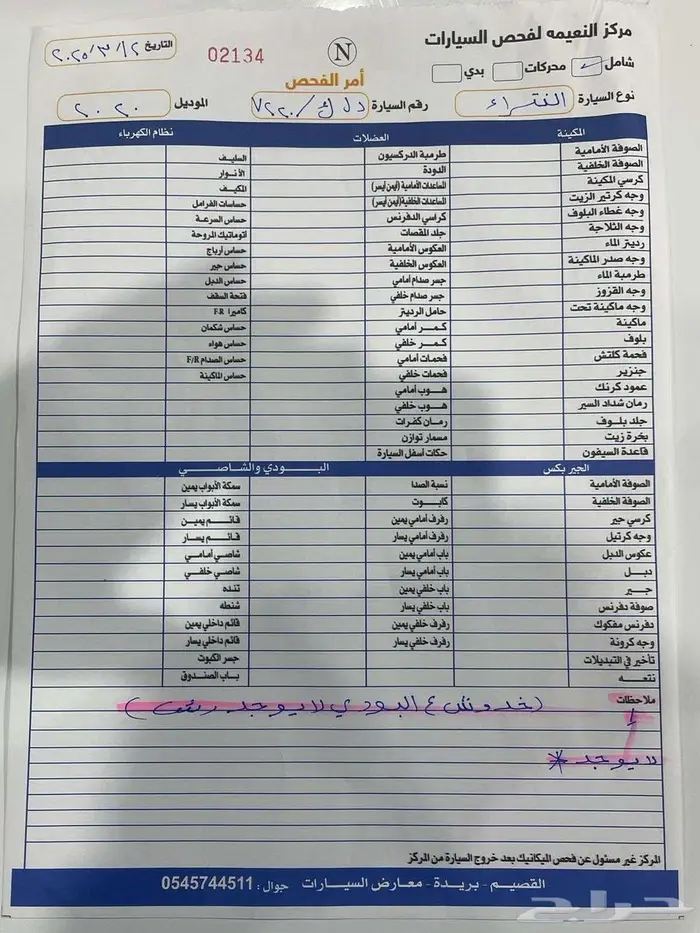 مركز النعيمه لفحص السيارات
N
02134
التاريخ ٢٠٢٥/٣/١٢
شامل محركات بدي
أمر الفحص
نوع السيارة النتراء رقم السيارة د ل ك / ٧٢٢٠ الموديل ٢٠٢٠
المكينة العضلات نظام الكهرباء
الصوفة الأمامية طرمبة الدركسيون السليف
الصوفة الخلفية الدودة الأنوار
كرسي المكينة المساعدات الأمامية (أيمن أيسر) المكيف
وجه كرتير الزيت المساعدات الخلفية (أيمن أيسر) حساسات الفرامل
وجه غطاء البلوف كراسي الدفرنس حساس السرعة
وجه الثلاجة جلد المقصات أتوماتيك المروحة
رديتر الماء العكوس الأمامية حساس أرباج
وجه صدر الماكينة العكوس الخلفية حساس جير
طرمبة الماء جسر صدام أمامي حساس الدبل
وجه القزوز جسر صدام خلفي فتحة السقف
وجه ماكينة تحت حامل الرديتر كاميرا F-R
ماكينة كمر أمامي حساس شكمان
بلوف كمر خلفي حساس هواء
فحمة كلتش فحمات أمامي حساس الصدام F/R
جنزير فحمات خلفي حساس الماكينة
عمود كرنك هوب أمامي
رمان شداد السير هوب خلفي
جلد بلوف رمان كفرات
بخرة زيت مسمار توازن
قاعدة السيفون حكات أسفل السيارة
الجير بكس البودي والشاصي
الصوفة الأمامية نسبة الصدا سمكة الأبواب يمين
الصوفة الخلفية كابوت سمكة الأبواب يسار
كرسي جير رفرف أمامي يمين قائم يمين
وجه كرتيل رفرف أمامي يسار قائم يسار
عكوس الدبل باب أمامي يمين شاصي أمامي
دبل باب أمامي يسار شاصي خلفي
جير باب خلفي يمين تنده
صوفة دفرنس باب خلفي يسار شنطه
دفرنس مفكوك رفرف خلفي يمين قائم داخلي يمين
وجه كرونة رفرف خلفي يسار قائم داخلي يسار
تأخير في التبديلات جسر الكبوت
نتعه باب الصندوق
ملاحظات (خدوش ع البودي لا يوجد رش)
لا يوجد *
المركز غير مسئول عن فحص الميكانيك بعد خروج السيارة من المركز
القصيم - بريدة - معارض السيارات جوال : 0545744511
حراج